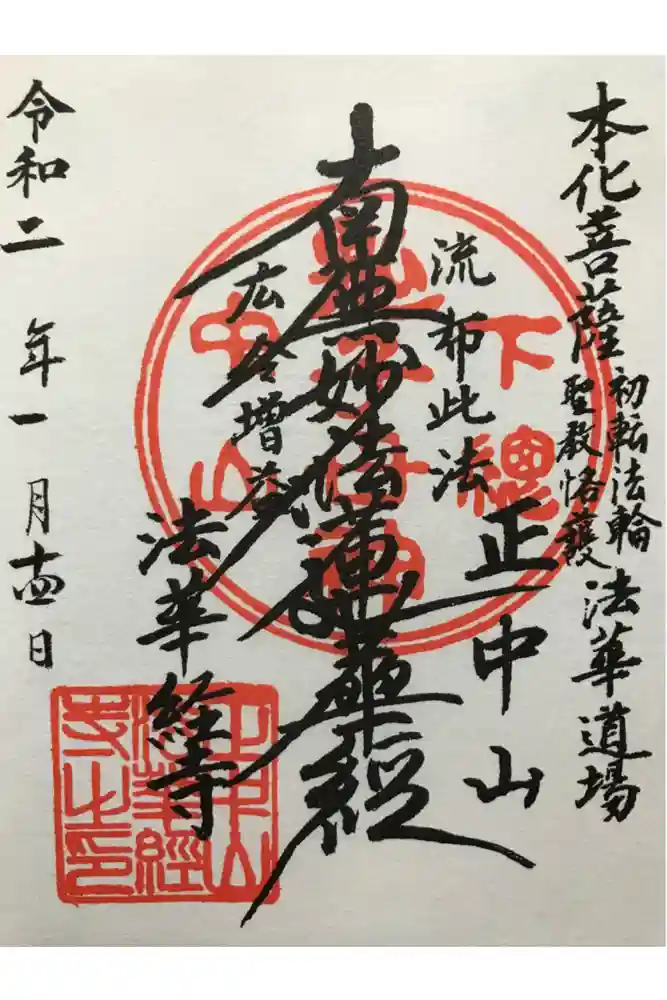 本化菩薩
初転法輪
聖教格護
法華道場
正中山
流布此法
南無妙法蓮華経
広令増益
法華経寺
令和二年一月十四日
下總
中山
正中山
法華經
寺之印